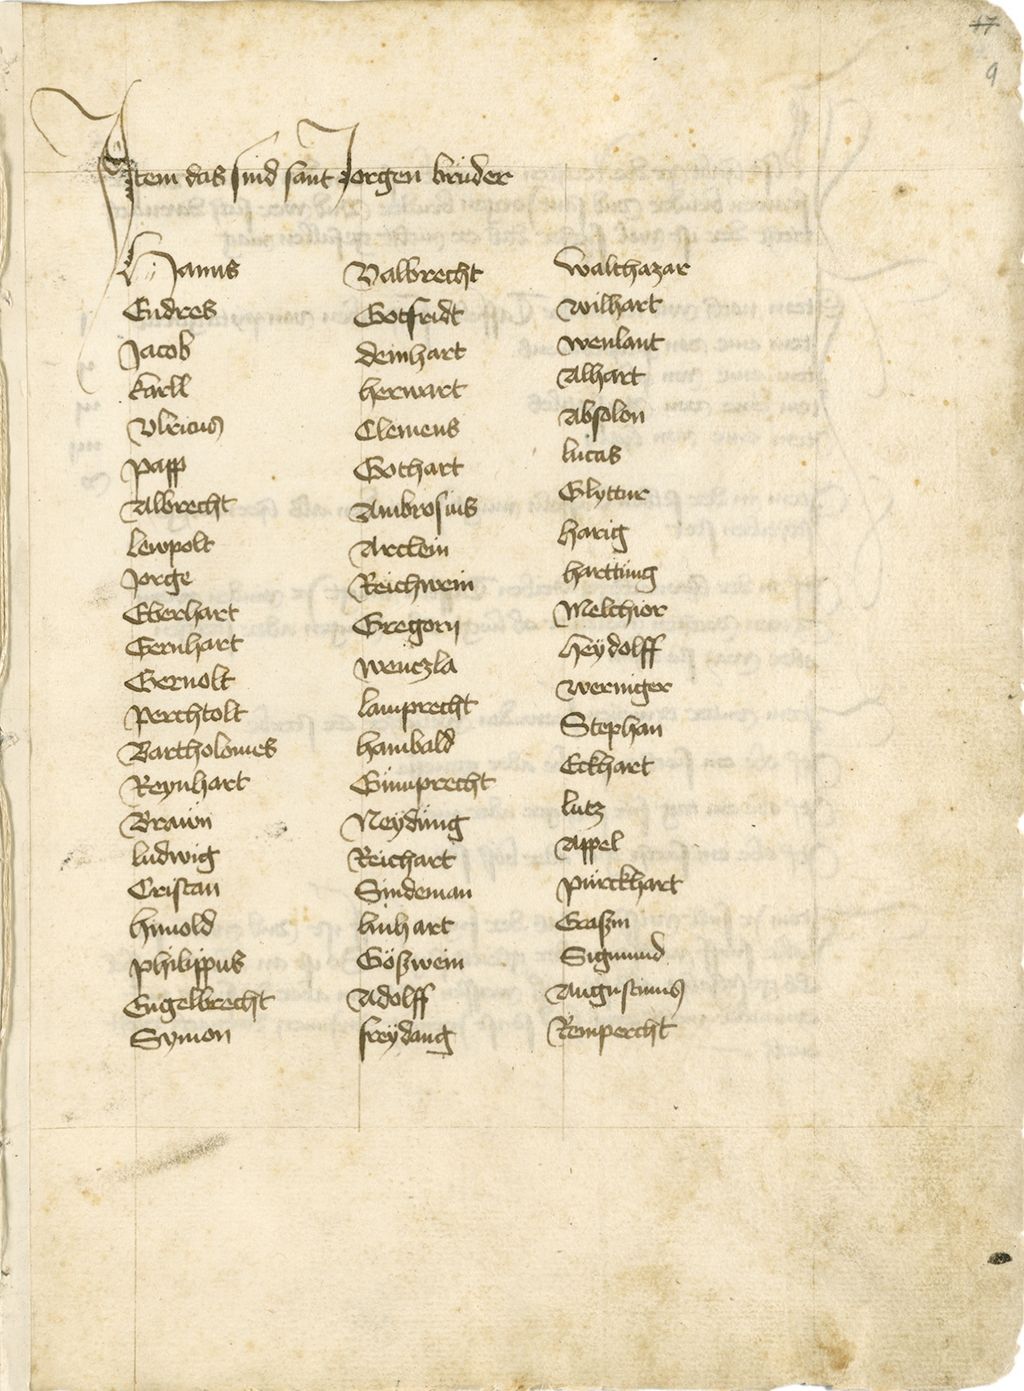 17
9
Item das sind sant Jorgen brüder
Hanns
Endres
Jacob
karll
Vlricus
papp
Albrecht
lewpolt
Jorge
Eberhart
Gernhart
Gernolt
perchtolt
Bartholomes
Reynhart
Brawn
ludwig
Cristan
hunold
philippus
Engelbrecht
Symon
Valbrecht
Gotfridt
deinhart
herwart
Clemens
Gothart
Ambrosius
Arcklein
Reichwein
Gregorij
wenczla
lamprecht
hambald
Gumprecht
Neydung
Reichart
Sindeman
linhart
Göszwein
Adolff
freydang
walthazar
wilhart
wenlant
Alhart
Absolon
lucas
Glyttur
harig
harttung
Melchior
Heydolff
werniger
Stephan
Eckhart
lutz
Appel
pürckhart
Eraszm
Sigmund
Augustinus
Rempercht